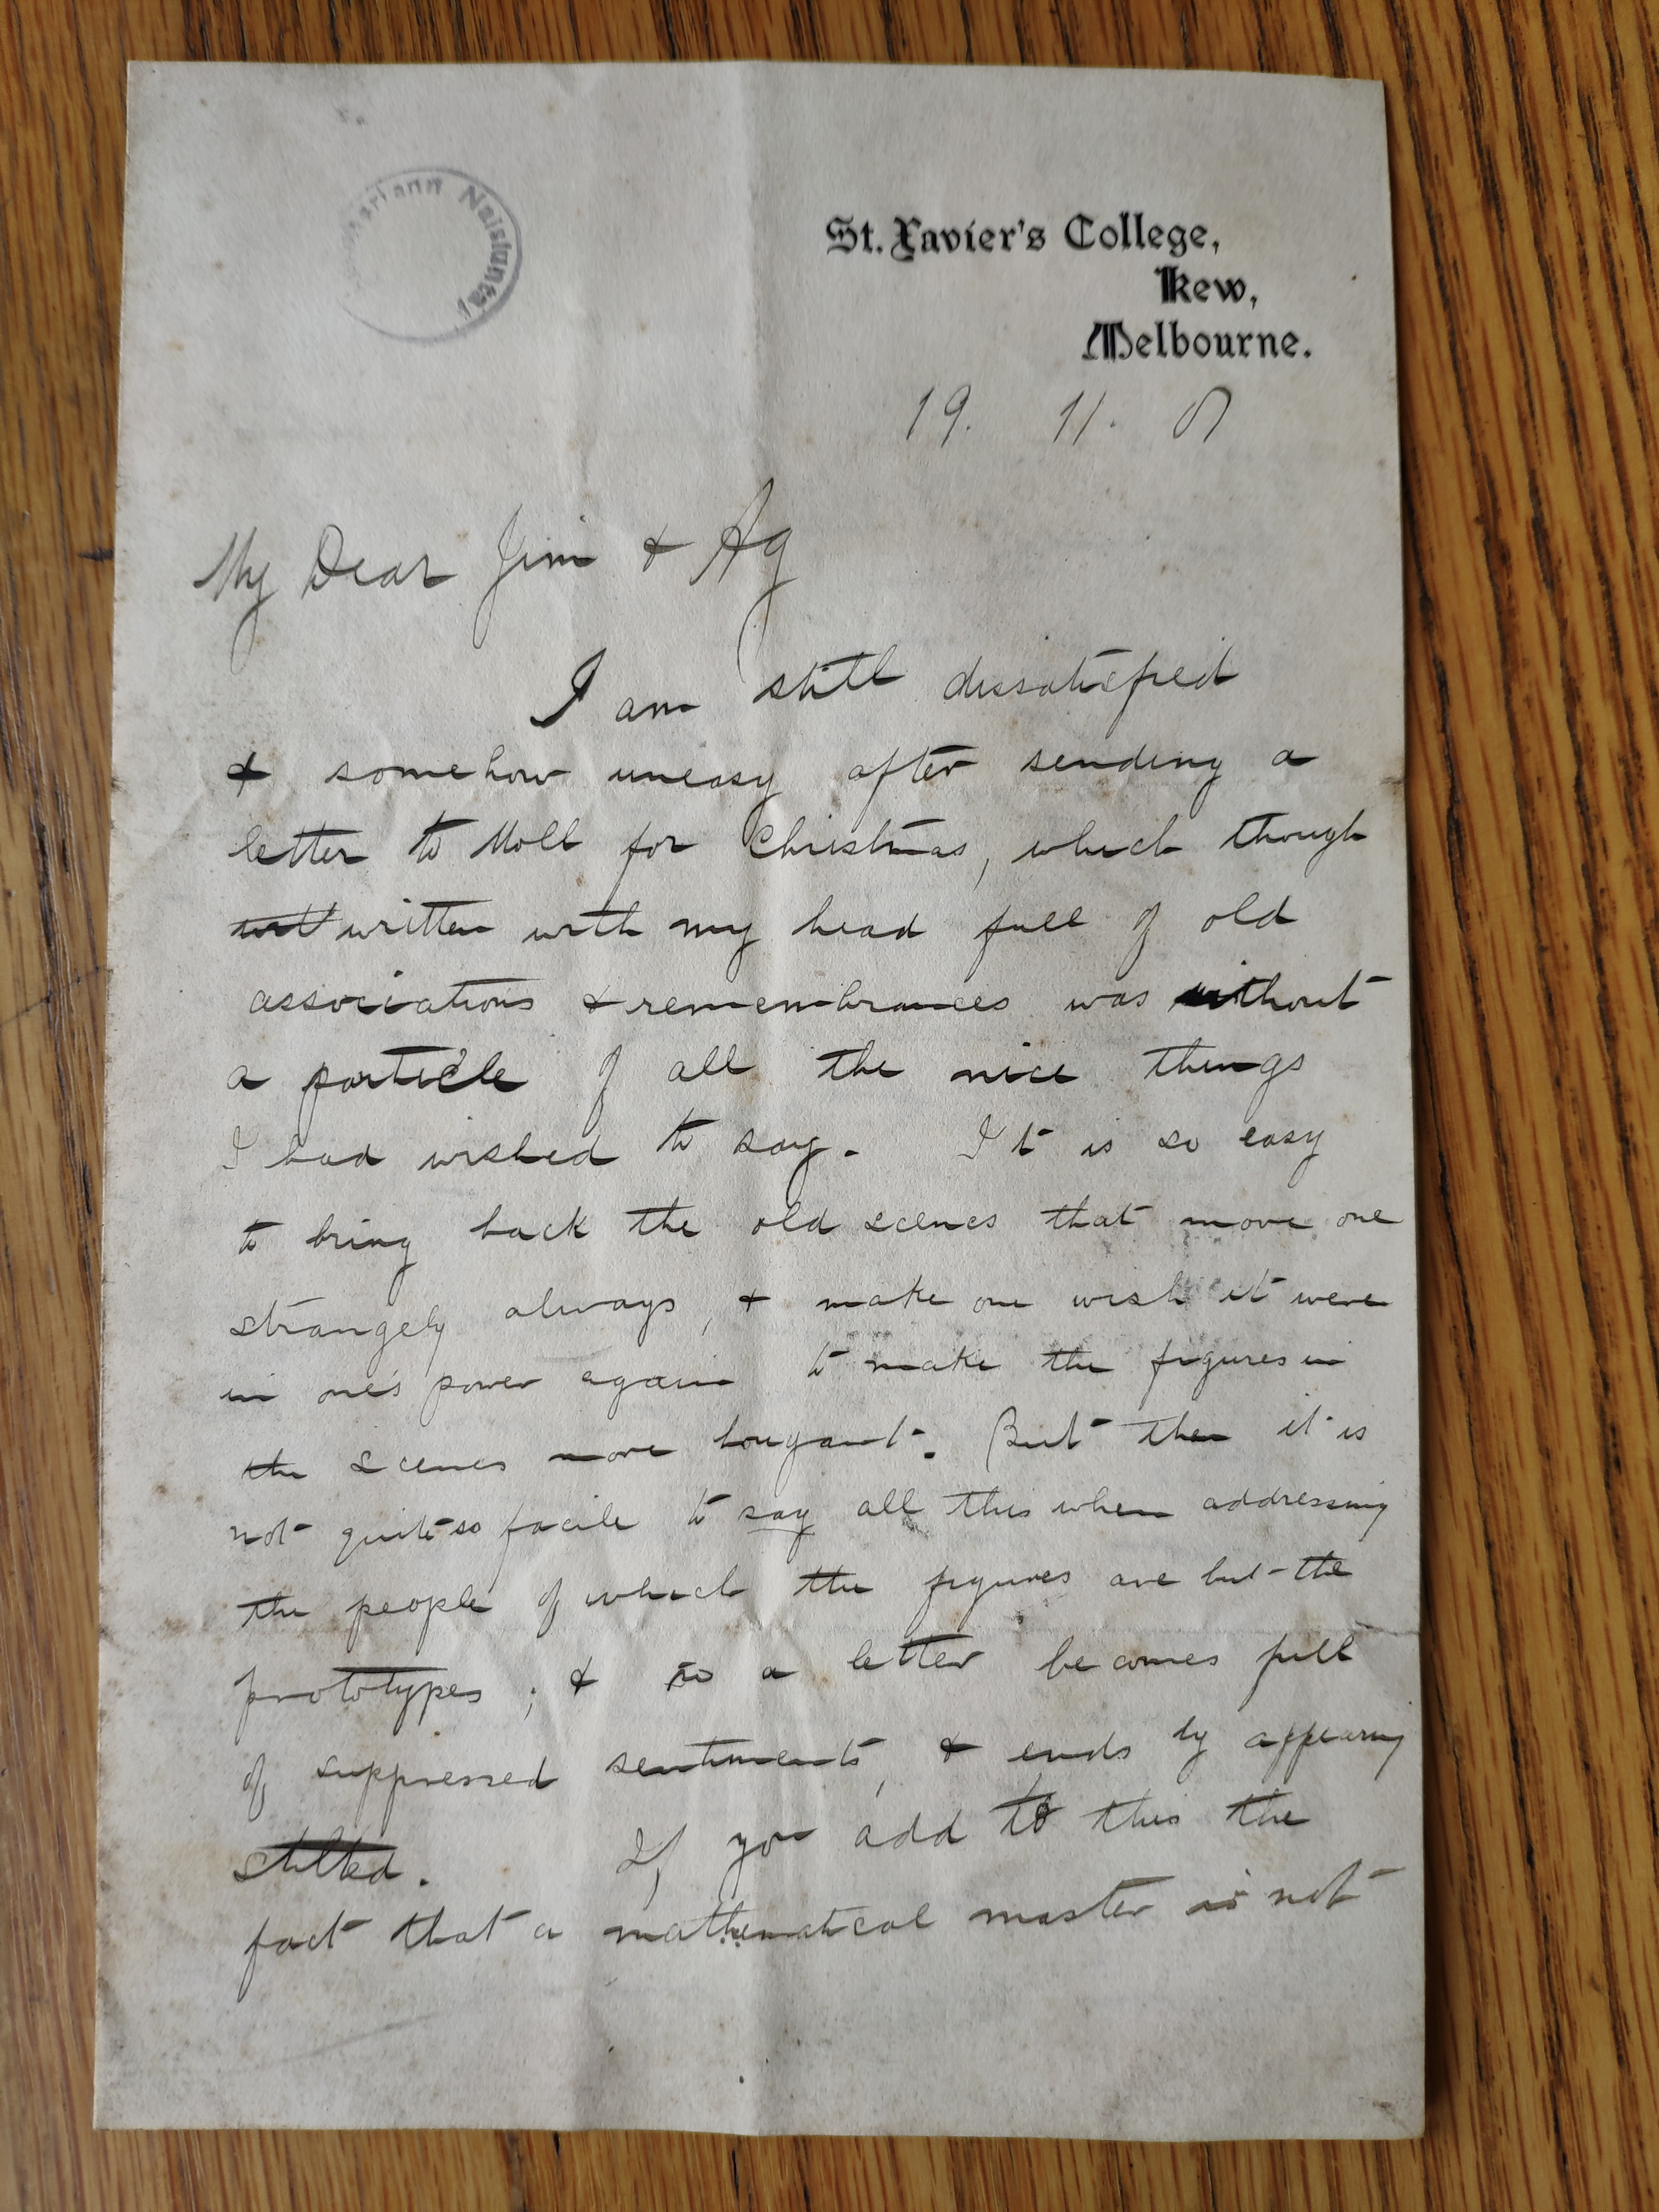 Naisiunta
St. Xavier's College,
Kew,
Melbourne.
19. 11. 07
My Dear Jim & Ag
I am still dissatisfied
& somehow uneasy after sending a
letter to Moll for Christmas, which though
written with my head full of old
associations & remembrances was without
a particle of all the nice things
I had wished to say. It is so easy
to bring back the old scenes that move one
strangely always, & make one wish it were
in one's power again to make the figures in
the scenes more buoyant. But then it is
not quite so facile to say all this when addressing
the people of which the figures are but the
prototypes; & so a letter becomes full
of suppressed sentiments, & ends by appearing
stilted. If you add to this the
fact that a mathematical master is not